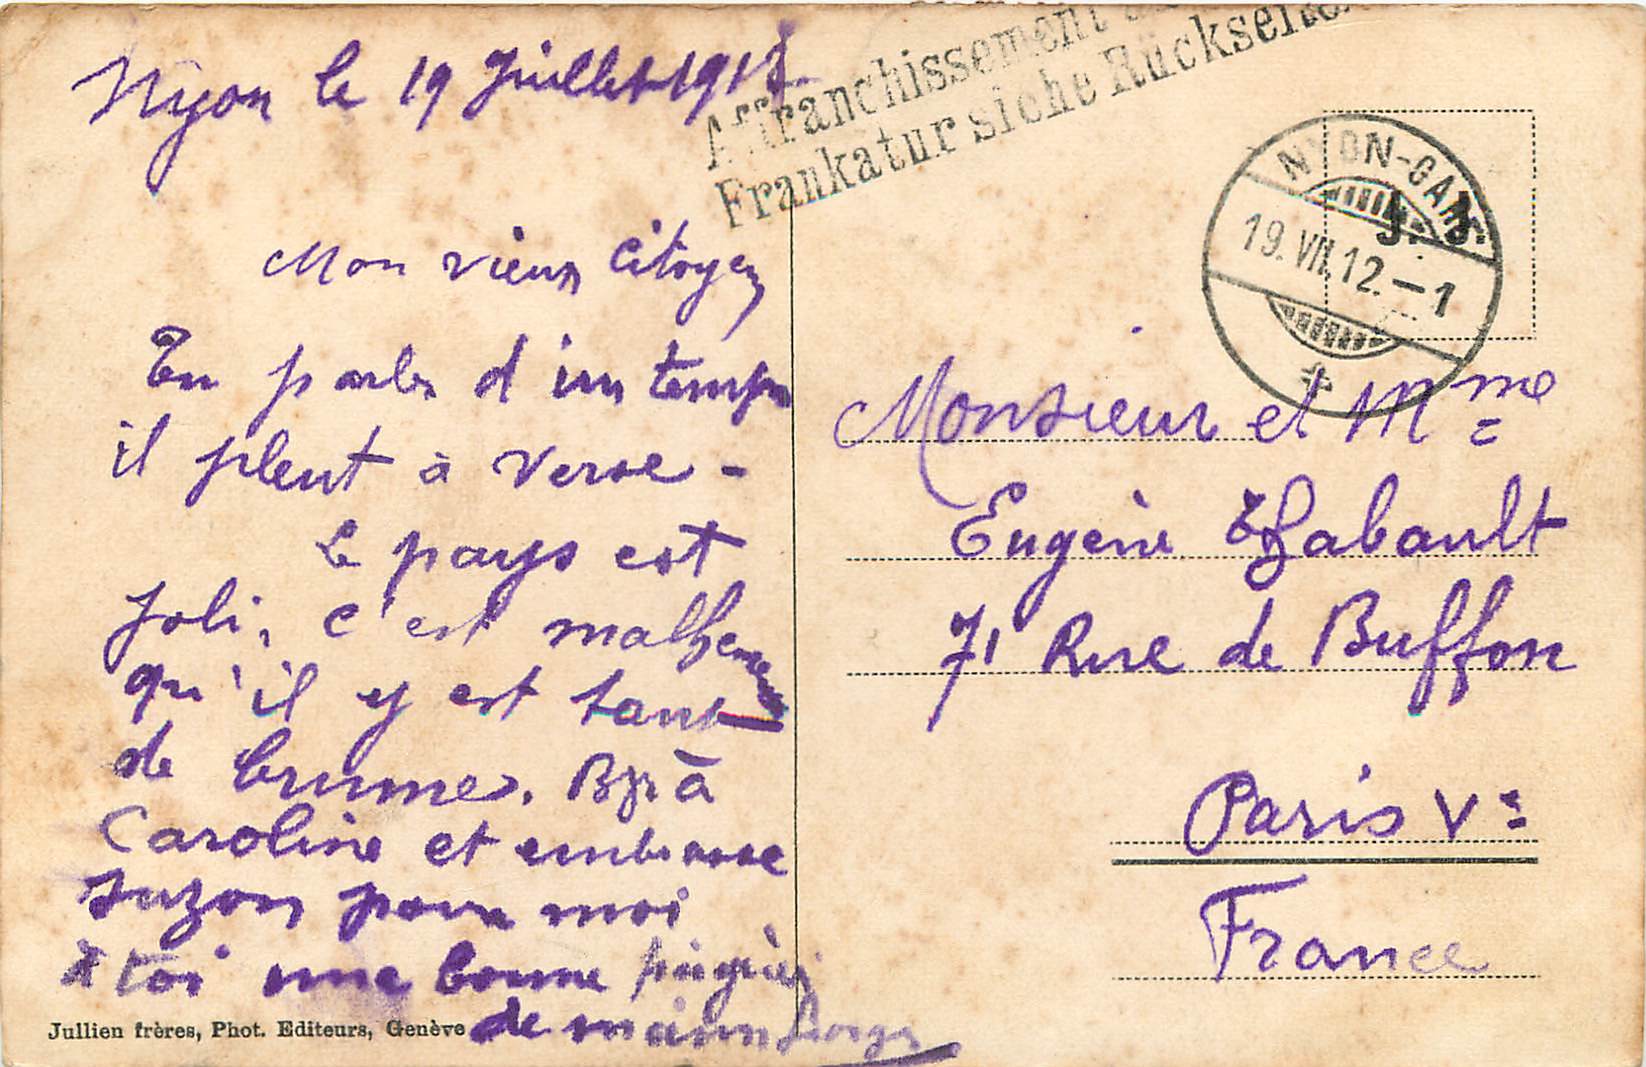 Nyon le 19 Juillet 1912
Affranchissement au
Frankatur siehe Rückseite
NYON-GARE
19. VII. 12. — 1
J. J.
Mon vieux Citoyen
En parler d'un temps
il pleut à verse -
Le pays est
joli, c'est malheureux
qu'il y est tant
de brume. Bjr à
Caroline et embrasse
Suzon pour moi
à toi une bonne
de main Georges
Jullien frères, Phot. Editeurs, Genève
Monsieur et Mme
Eugène Thabault
7, Rue de Buffon
Paris Ve
France